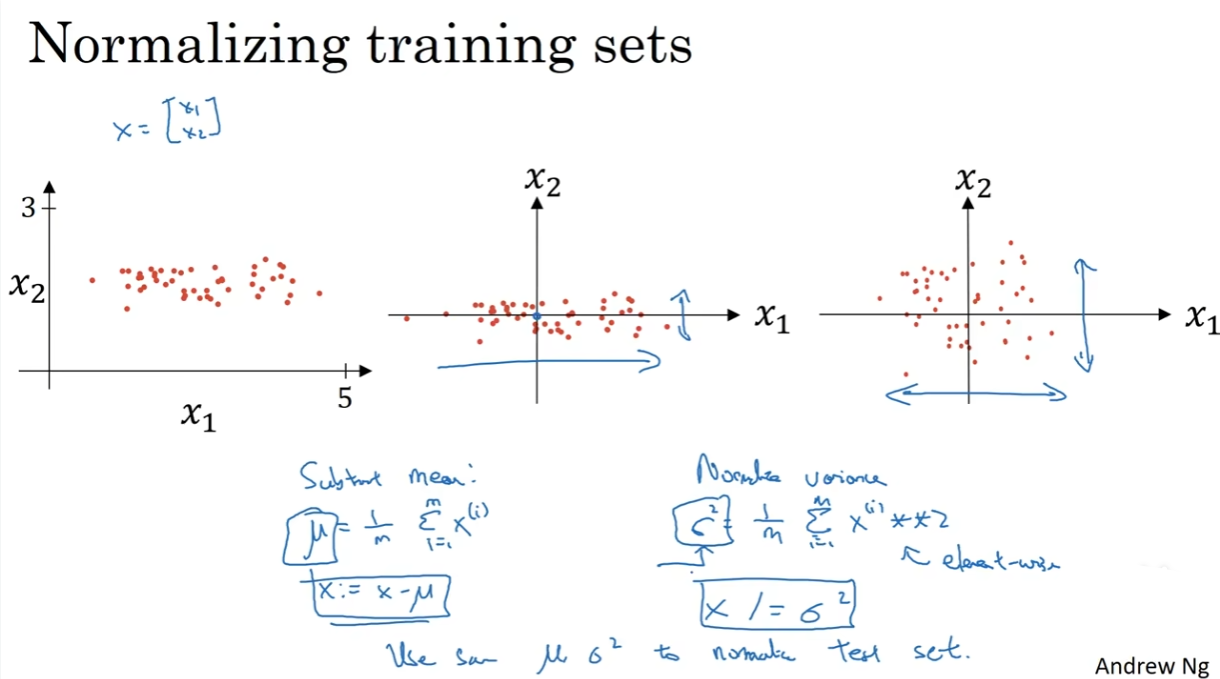 Normalizing training sets
x = [x1 x2]
3
x2
x1
5
x2
x1
x2
x1
Subtract mean:
μ = 1/m Σ i=1 m x^(i)
x := x - μ
Normalize variance
σ² = 1/m Σ i=1 m x^(i) **2
element-wise
x /= σ²
Use same μ σ² to normalize test set.
Andrew Ng